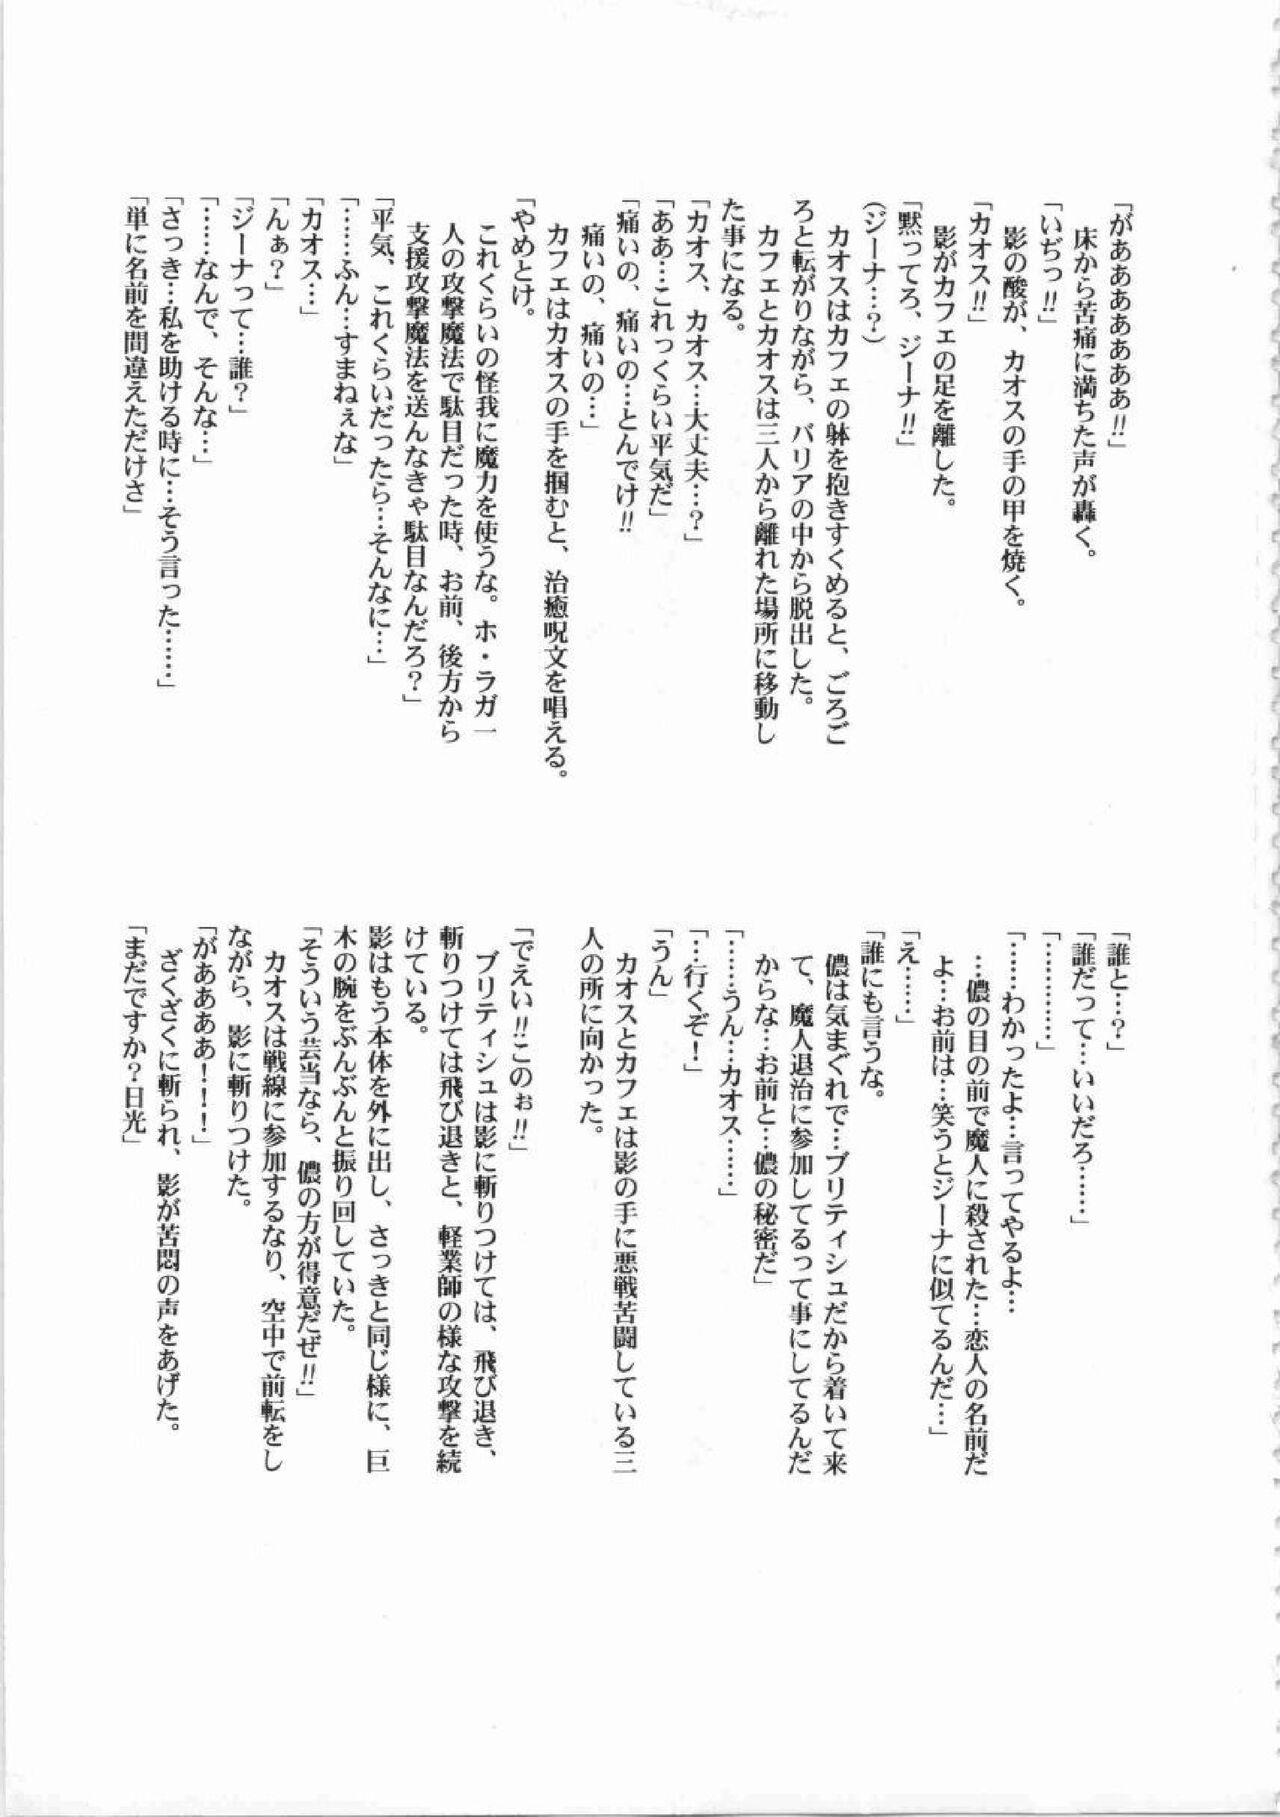 「がああああああぁ!!」
　床から苦痛に満ちた声が轟く。
「いぢっ!!」
　影の酸が、カオスの手の甲を焼く。
「カオス!!」
　影がカフェの足を離した。
「黙ってろ、ジーナ!!」
（ジーナ…?）
　カオスはカフェの躰を抱きすくめると、ごろご
ろと転がりながら、バリアの中から脱出した。
　カフェとカオスは三人から離れた場所に移動し
た事になる。
「カオス、カオス…大丈夫…?」
「ああ…これっくらい平気だ」
「痛いの、痛いの…とんでけ!!
　痛いの、痛いの…」
　カフェはカオスの手を掴むと、治癒呪文を唱える。
「やめとけ。
　これくらいの怪我に魔力を使うな。ホ・ラガ一
　人の攻撃魔法で駄目だった時、お前、後方から
　支援攻撃魔法を送んなきゃ駄目なんだろ?」
「平気、これくらいだったら…そんなに…」
「……ふん…すまねぇな」
「カオス…」
「んぁ?」
「ジーナって…誰?」
「……なんで、そんな…」
「さっき…私を助ける時に…そう言った……」
「単に名前を間違えただけさ」
「誰と…?」
「誰だって…いいだろ……」
「…………」
「……わかったよ…言ってやるよ…
　…儂の目の前で魔人に殺された…恋人の名前だ
　よ…お前は…笑うとジーナに似てるんだ…」
「え……」
「誰にも言うな。
　儂は気まぐれで…ブリティシュだから着いて来
　て、魔人退治に参加してるって事にしてるんだ
　からな…お前と…儂の秘密だ」
「……うん…カオス……」
「…行くぞ！」
「うん」
　カオスとカフェは影の手に悪戦苦闘している三
人の所に向かった。
「でえい!!このぉ!!」
　ブリティシュは影に斬りつけては、飛び退き、
斬りつけては飛び退きと、軽業師の様な攻撃を続
けている。
影はもう本体を外に出し、さっきと同じ様に、巨
木の腕をぶんぶんと振り回していた。
「そういう芸当なら、儂の方が得意だぜ!!」
　カオスは戦線に参加するなり、空中で前転をし
ながら、影に斬りつけた。
「がああああ！！！」
　ざくざくに斬られ、影が苦悶の声をあげた。
「まだですか?日光」